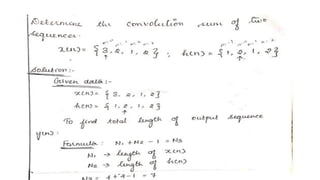 Determine the convolution sum of two
sequences
x(n) = {3, 2, 1, 2} ; h(n) = {1, 2, 1, 2}
↑ ↑
Solution:-
Given data:-
x(n) = {3, 2, 1, 2}
h(n) = {1, 2, 1, 2}
↑
To find total length of output sequence
y(n):
Formula: N1 + N2 - 1 = N3
N1 → length of x(n)
N2 → length of h(n)
N3 = 4+4-1 = 7